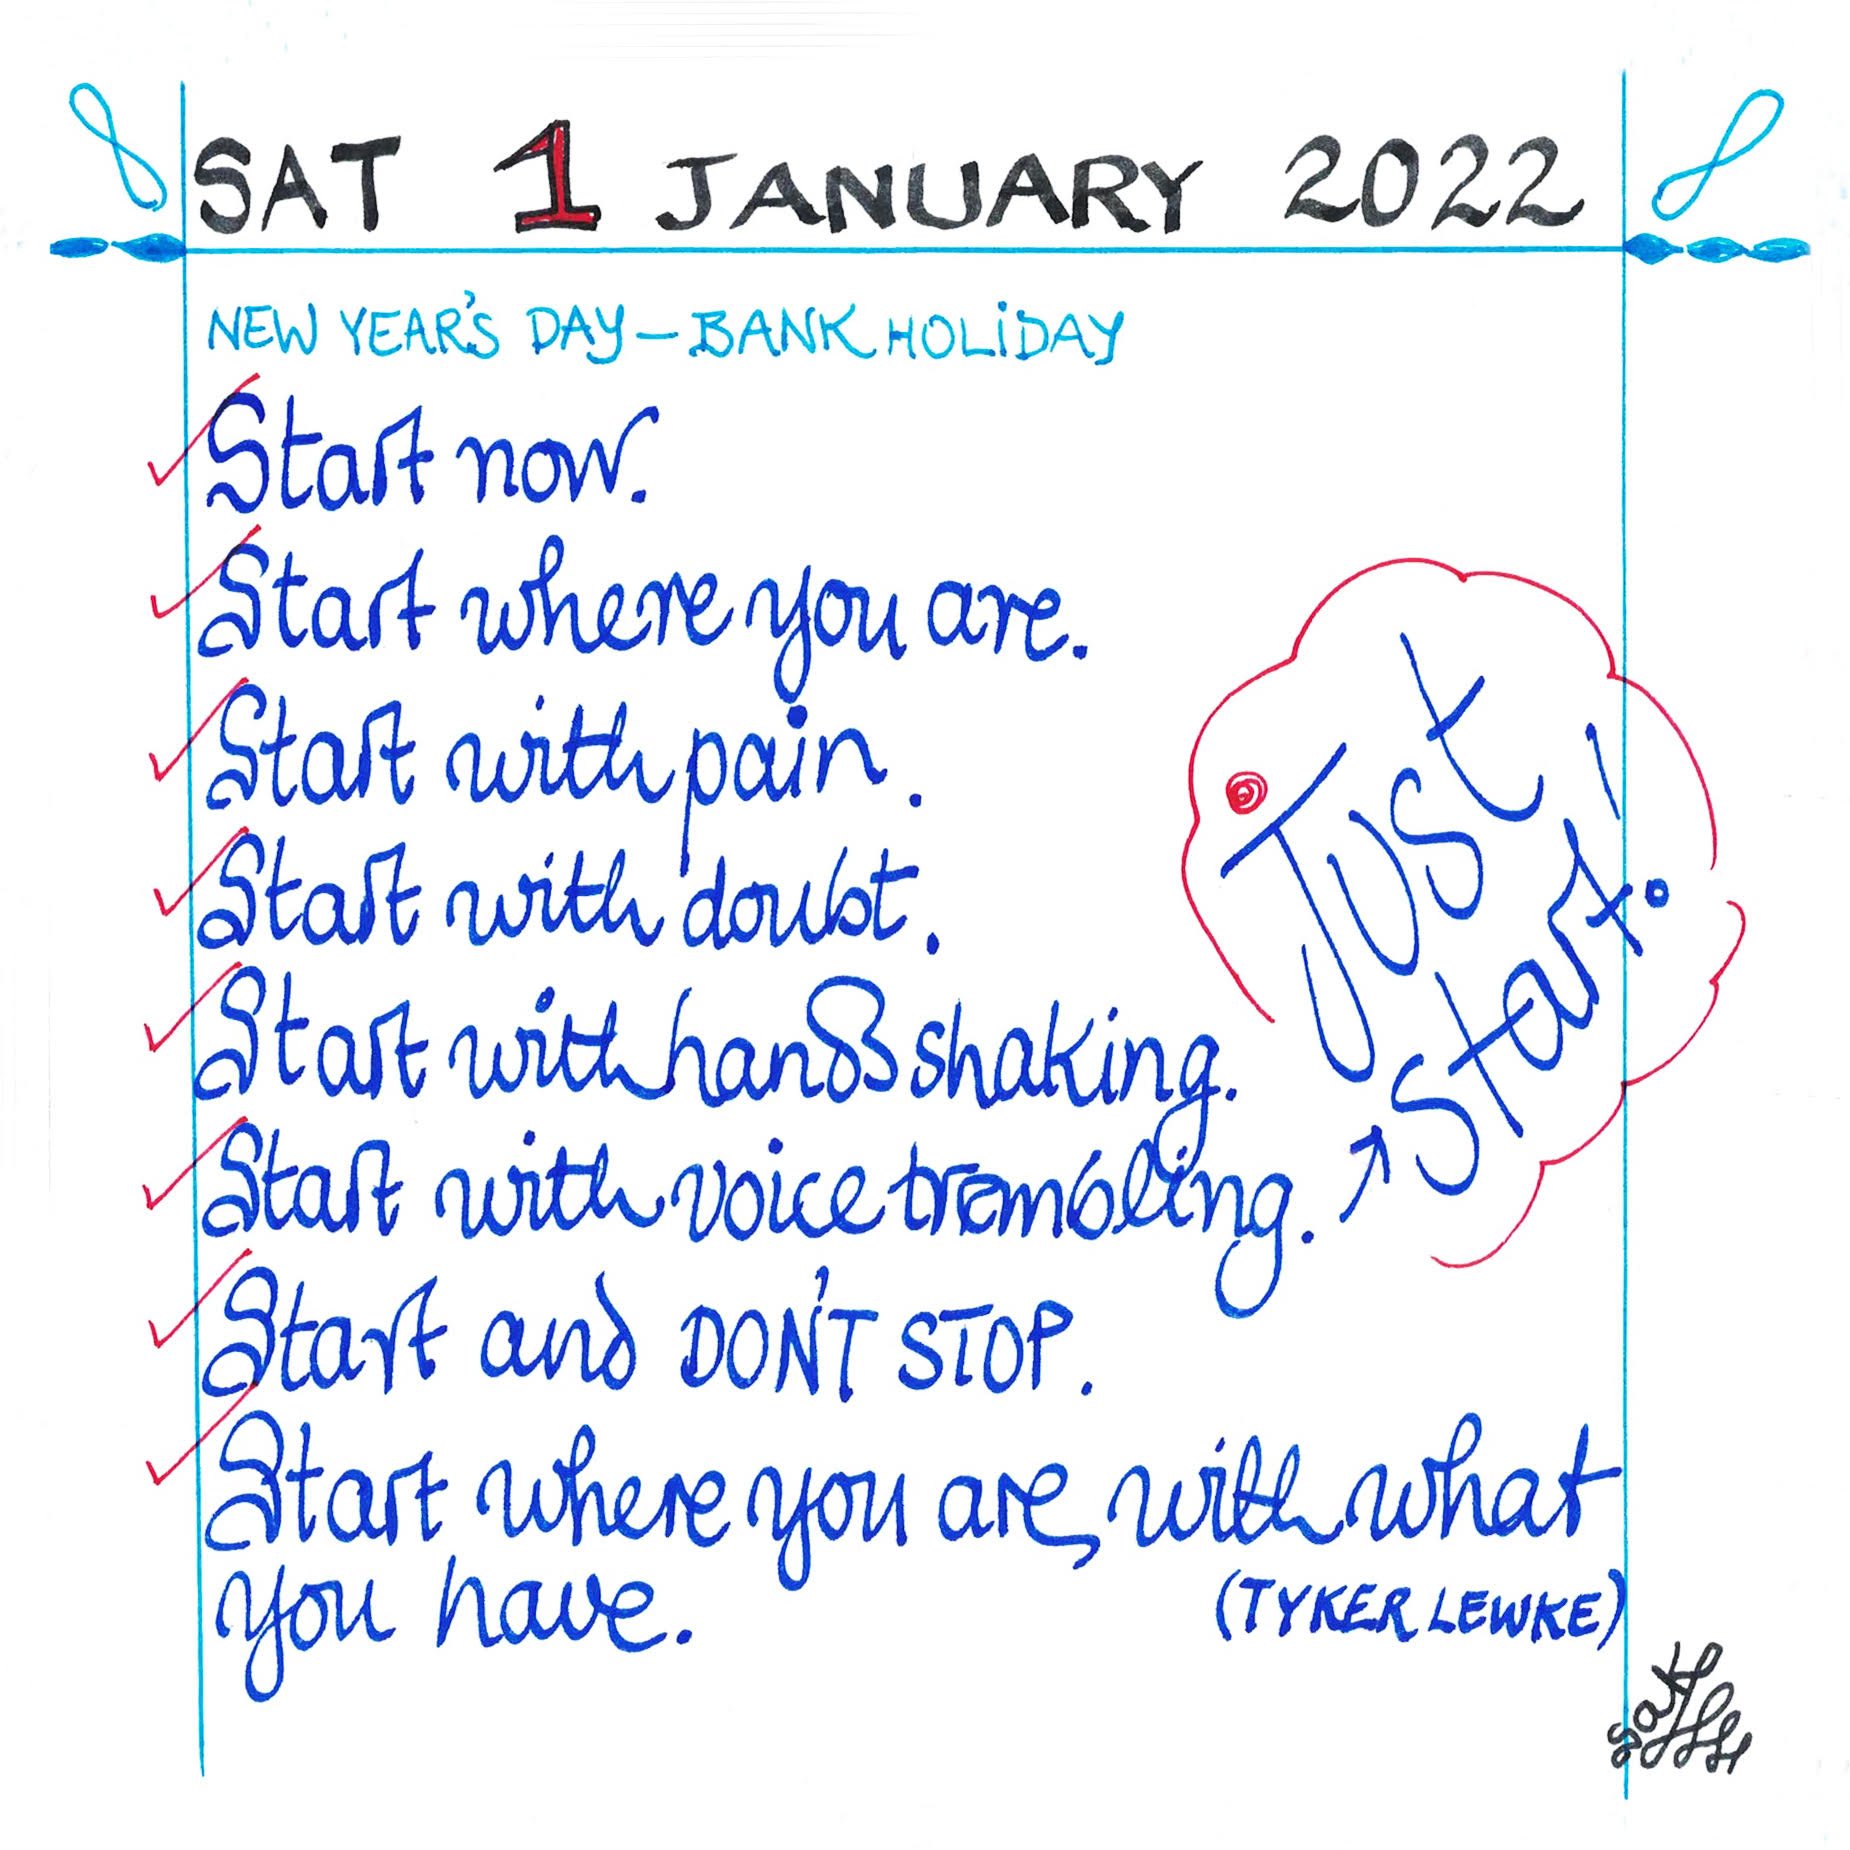 SAT 1 JANUARY 2022
NEW YEAR'S DAY – BANK HOLIDAY
Start now.
Start where you are.
Start with pain.
Start with doubt.
Start with hands shaking.
Start with voice trembling.
Start and DON'T STOP.
Start where you are, with what
you have.
(TYKER LEWKE)
Just
start!